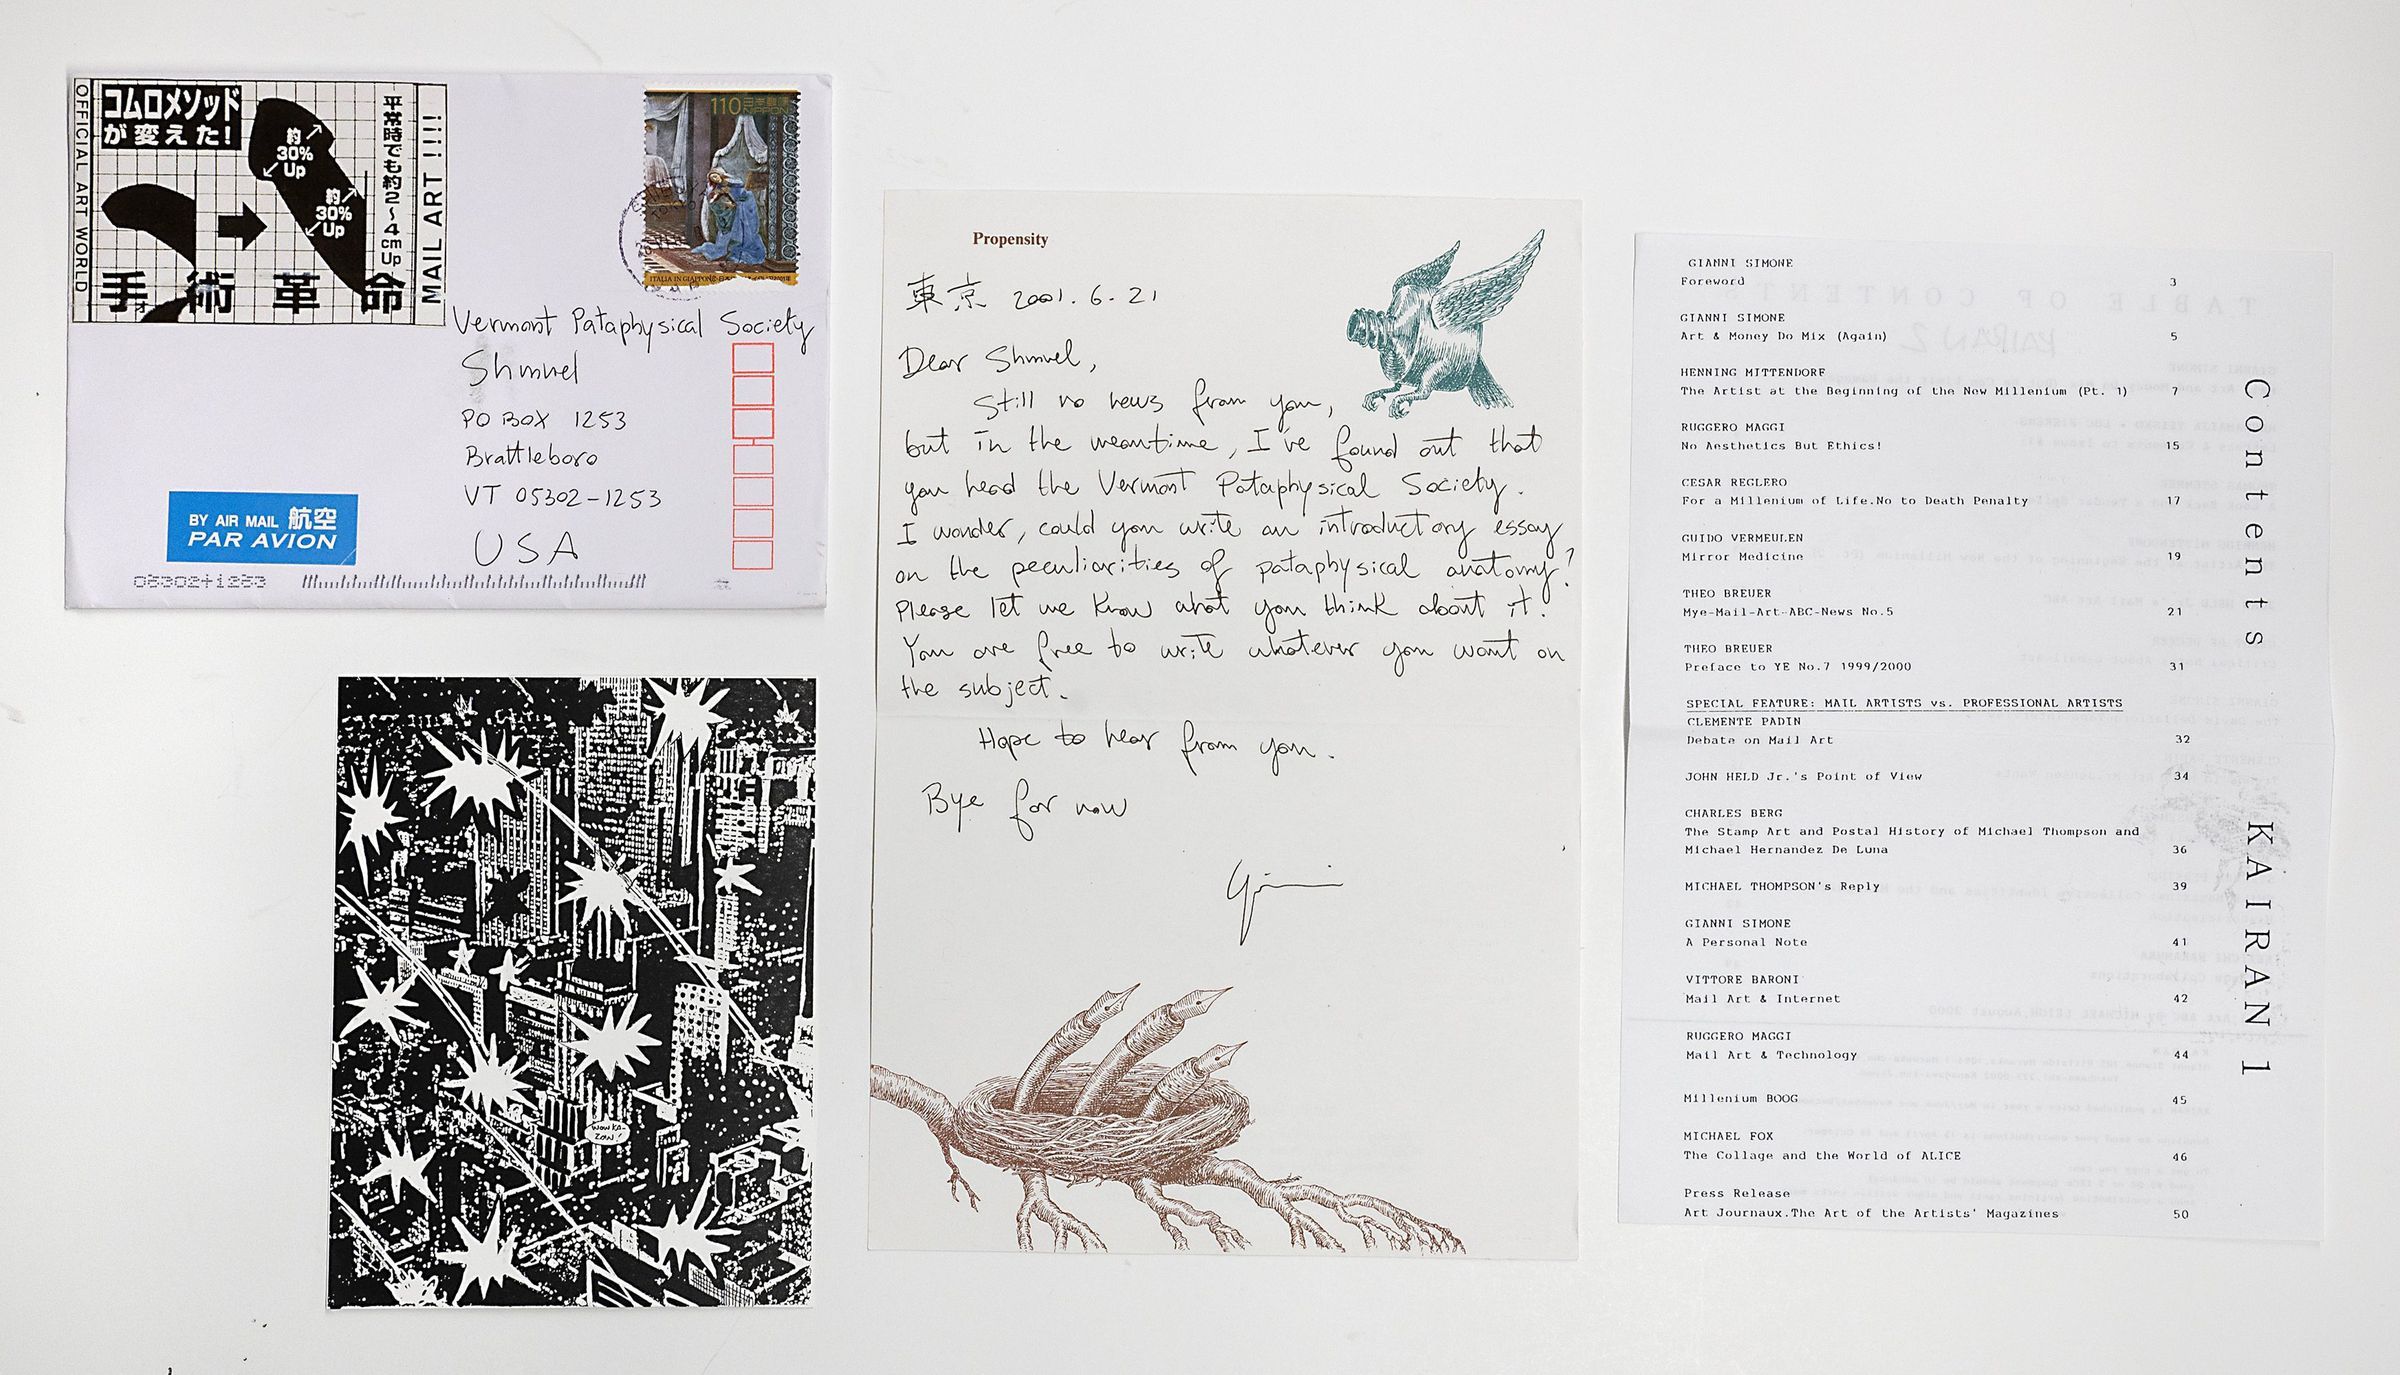 OFFICIAL ART WORLD
コムロメソッド
が変えた!
約
30%
Up
約
30%
Up
平常時でも約2〜4cm Up
手術革命
MAIL ART !!!!
110 日本郵便
NIPPON
ITALIA IN GIAPPONE
Vermont Pataphysical Society
Shmuel
PO BOX 1253
Brattleboro
VT 05302-1253
USA
BY AIR MAIL 航空
PAR AVION
05302+1253
WOW KA-
ZOW!
Propensity
東京 2001.6.21
Dear Shmuel,
Still no news from you,
but in the meantime, I've found out that
you head the Vermont Pataphysical Society.
I wonder, could you write an introductory essay
on the peculiarities of pataphysical anatomy?
Please let me know what you think about it.
You are free to write whatever you want on
the subject.
Hope to hear from you.
Bye for now
GIANNI SIMONE
Foreword 3
GIANNI SIMONE
Art & Money Do Mix (Again) 5
HENNING MITTENDORF
The Artist at the Beginning of the New Millenium (Pt. 1) 7
RUGGERO MAGGI
No Aesthetics But Ethics! 15
CESAR REGLERO
For a Millenium of Life.No to Death Penalty 17
GUIDO VERMEULEN
Mirror Medicine 19
THEO BREUER
Mye-Mail-Art-ABC-News No.5 21
THEO BREUER
Preface to YE No.7 1999/2000 31
SPECIAL FEATURE: MAIL ARTISTS vs. PROFESSIONAL ARTISTS
CLEMENTE PADIN
Debate on Mail Art 32
JOHN HELD Jr.'s Point of View 34
CHARLES BERG
The Stamp Art and Postal History of Michael Thompson and
Michael Hernandez De Luna 36
MICHAEL THOMPSON's Reply 39
GIANNI SIMONE
A Personal Note 41
VITTORE BARONI
Mail Art & Internet 42
RUGGERO MAGGI
Mail Art & Technology 44
Millenium BOOG 45
MICHAEL FOX
The Collage and the World of ALICE 46
Press Release
Art Journaux.The Art of the Artists' Magazines 50
Contents KAIRAN 1